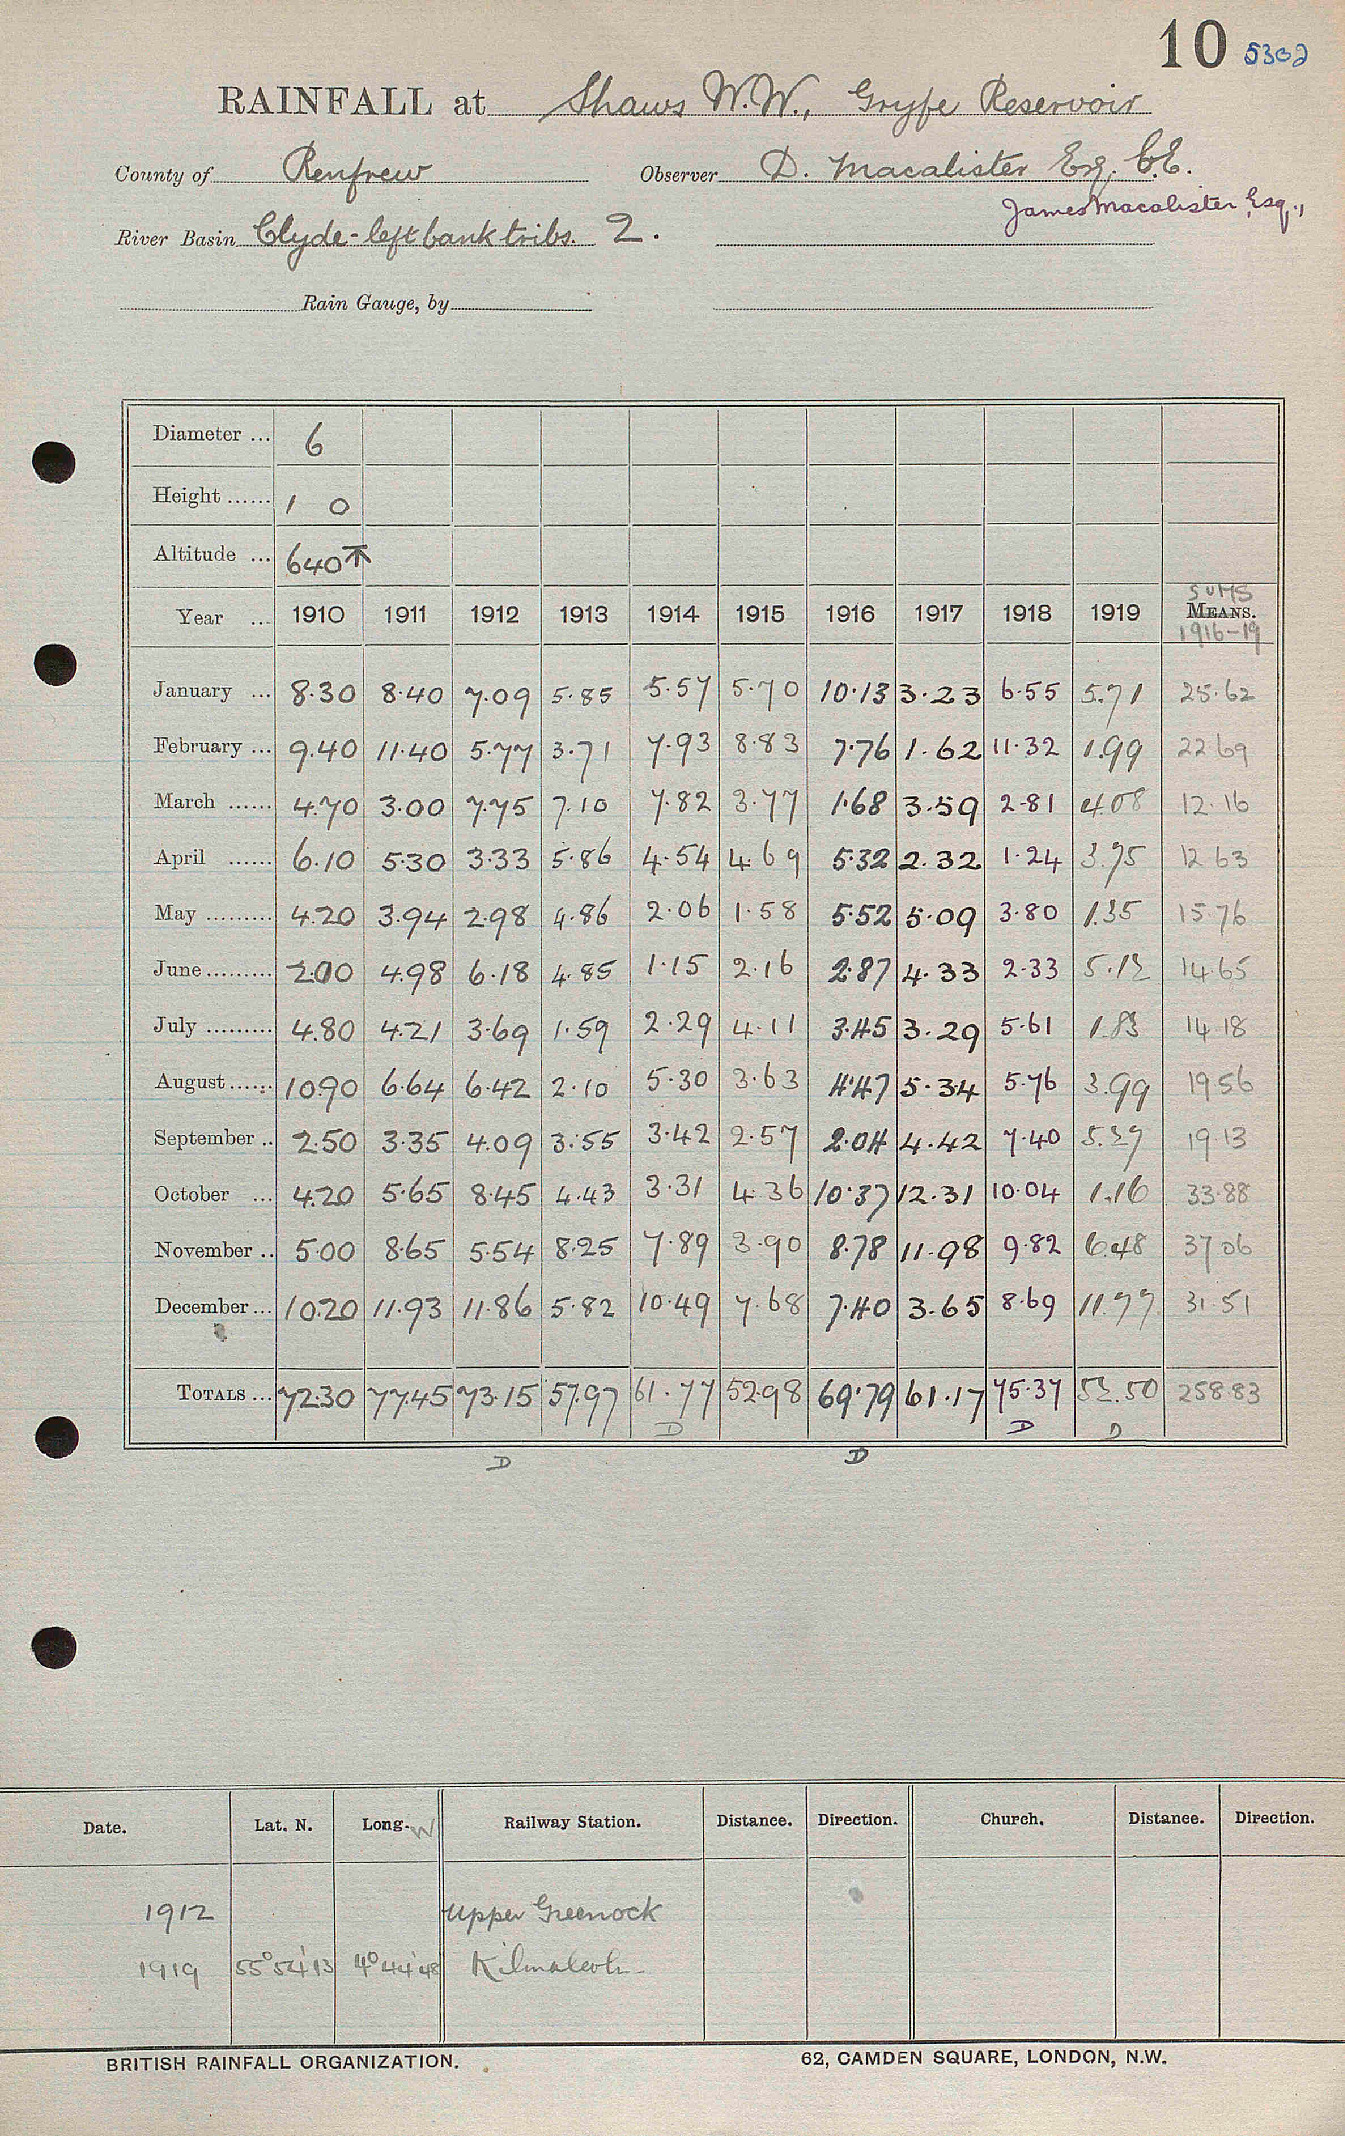 10 5302
RAINFALL at Shaws W.W., Gryfe Reservoir
County of Renfrew Observer D. Macalister Esq. C.E.
James Macalister, Esq.,
River Basin Clyde - left bank tribs. 2.
Rain Gauge, by
Diameter ... 6
Height ...... 1 0
Altitude ... 640 ⊼
SUMS
Year ... 1910 1911 1912 1913 1914 1915 1916 1917 1918 1919 MEANS.
1916-19
January ... 8.30 8.40 7.09 5.85 5.57 5.70 10.13 3.23 6.55 5.71 25.62
February ... 9.40 11.40 5.77 3.71 7.93 8.83 7.76 1.62 11.32 1.99 22.69
March ...... 4.70 3.00 7.75 7.10 7.82 3.77 1.68 3.59 2.81 4.08 12.16
April ...... 6.10 5.30 3.33 5.86 4.54 4.69 5.32 2.32 1.24 3.75 12.63
May ......... 4.20 3.94 2.98 4.86 2.06 1.58 5.52 5.09 3.80 1.35 15.76
June ......... 2.00 4.98 6.18 4.85 1.15 2.16 2.87 4.33 2.33 5.12 14.65
July ......... 4.80 4.21 3.69 1.59 2.29 4.11 3.45 3.29 5.61 1.83 14.18
August ...... 10.90 6.64 6.42 2.10 5.30 3.63 4.47 5.34 5.76 3.99 19.56
September .. 2.50 3.35 4.09 3.55 3.42 2.57 2.04 4.42 7.40 5.27 19.13
October ... 4.20 5.65 8.45 4.43 3.31 4.36 10.37 12.31 10.04 1.16 33.88
November .. 5.00 8.65 5.54 8.25 7.89 3.90 8.78 11.98 9.82 6.48 37.06
December ... 10.20 11.93 11.86 5.82 10.49 7.68 7.40 3.65 8.69 11.77 31.51
TOTALS ... 72.30 77.45 73.15 57.97 61.77 52.98 69.79 61.17 75.37 52.50 258.83
D D D
D D
Date. Lat. N. Long. W Railway Station. Distance. Direction. Church. Distance. Direction.
1912 Upper Greenock
1919 55° 54' 13 4° 44' 48 Kilmalcolm
BRITISH RAINFALL ORGANIZATION. 62, CAMDEN SQUARE, LONDON, N.W.